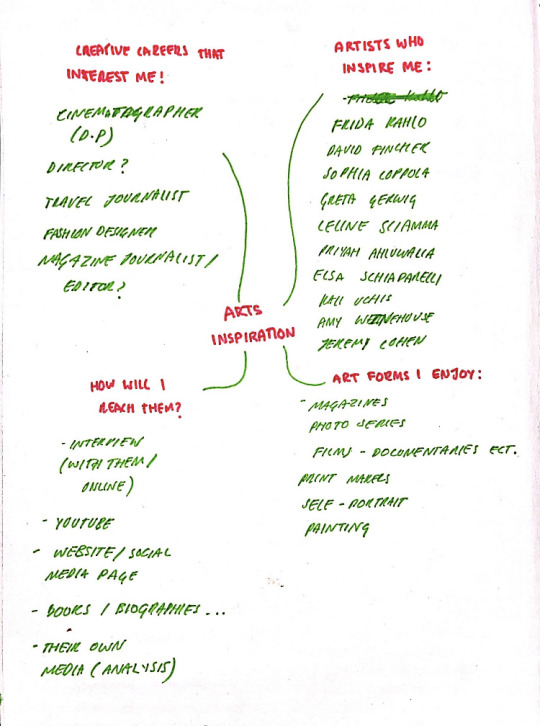 CREATIVE CAREERS THAT
INTEREST ME!
CINEMATAGRAPHER
(D.P)
DIRECTOR?
TRAVEL JOURNALIST
FASHION DESIGNER
MAGAZINE JOURNALIST/
EDITOR?
ARTISTS WHO
INSPIRE ME:
FRIDA KAHLO
DAVID FINCHER
SOPHIA COPPOLA
GRETA GERWIG
CELINE SCIAMMA
PRIYAH AHLUWALIA
ELSA SCHIAPARELLI
KALI UCHIS
AMY WEINEHOUSE
JEREMY COHEN
ARTS
INSPIRATION
HOW WILL I
REACH THEM?
- INTERVIEW
(WITH THEM/
ONLINE)
- YOUTUBE
- WEBSITE/SOCIAL
MEDIA PAGE
- BOOKS / BIOGRAPHIES...
- THEIR OWN
MEDIA (ANALYSIS)
ART FORMS I ENJOY:
- MAGAZINES
PHOTO SERIES
FILMS - DOCUMENTARIES ECT.
PRINT MAKERS
SELF-PORTRAIT
PAINTING